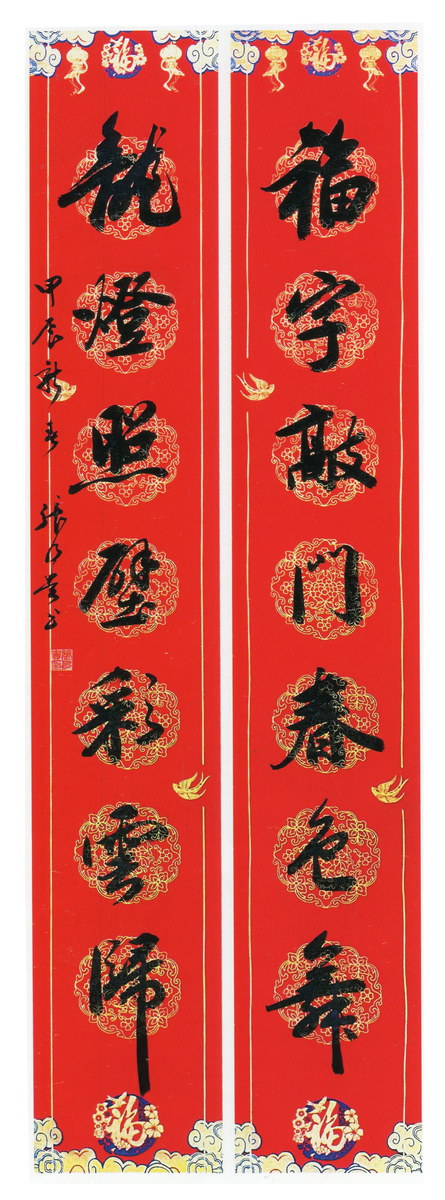 福
福字敲門春色舞
福
福
龍燈照壁彩雲歸
福
甲辰新春